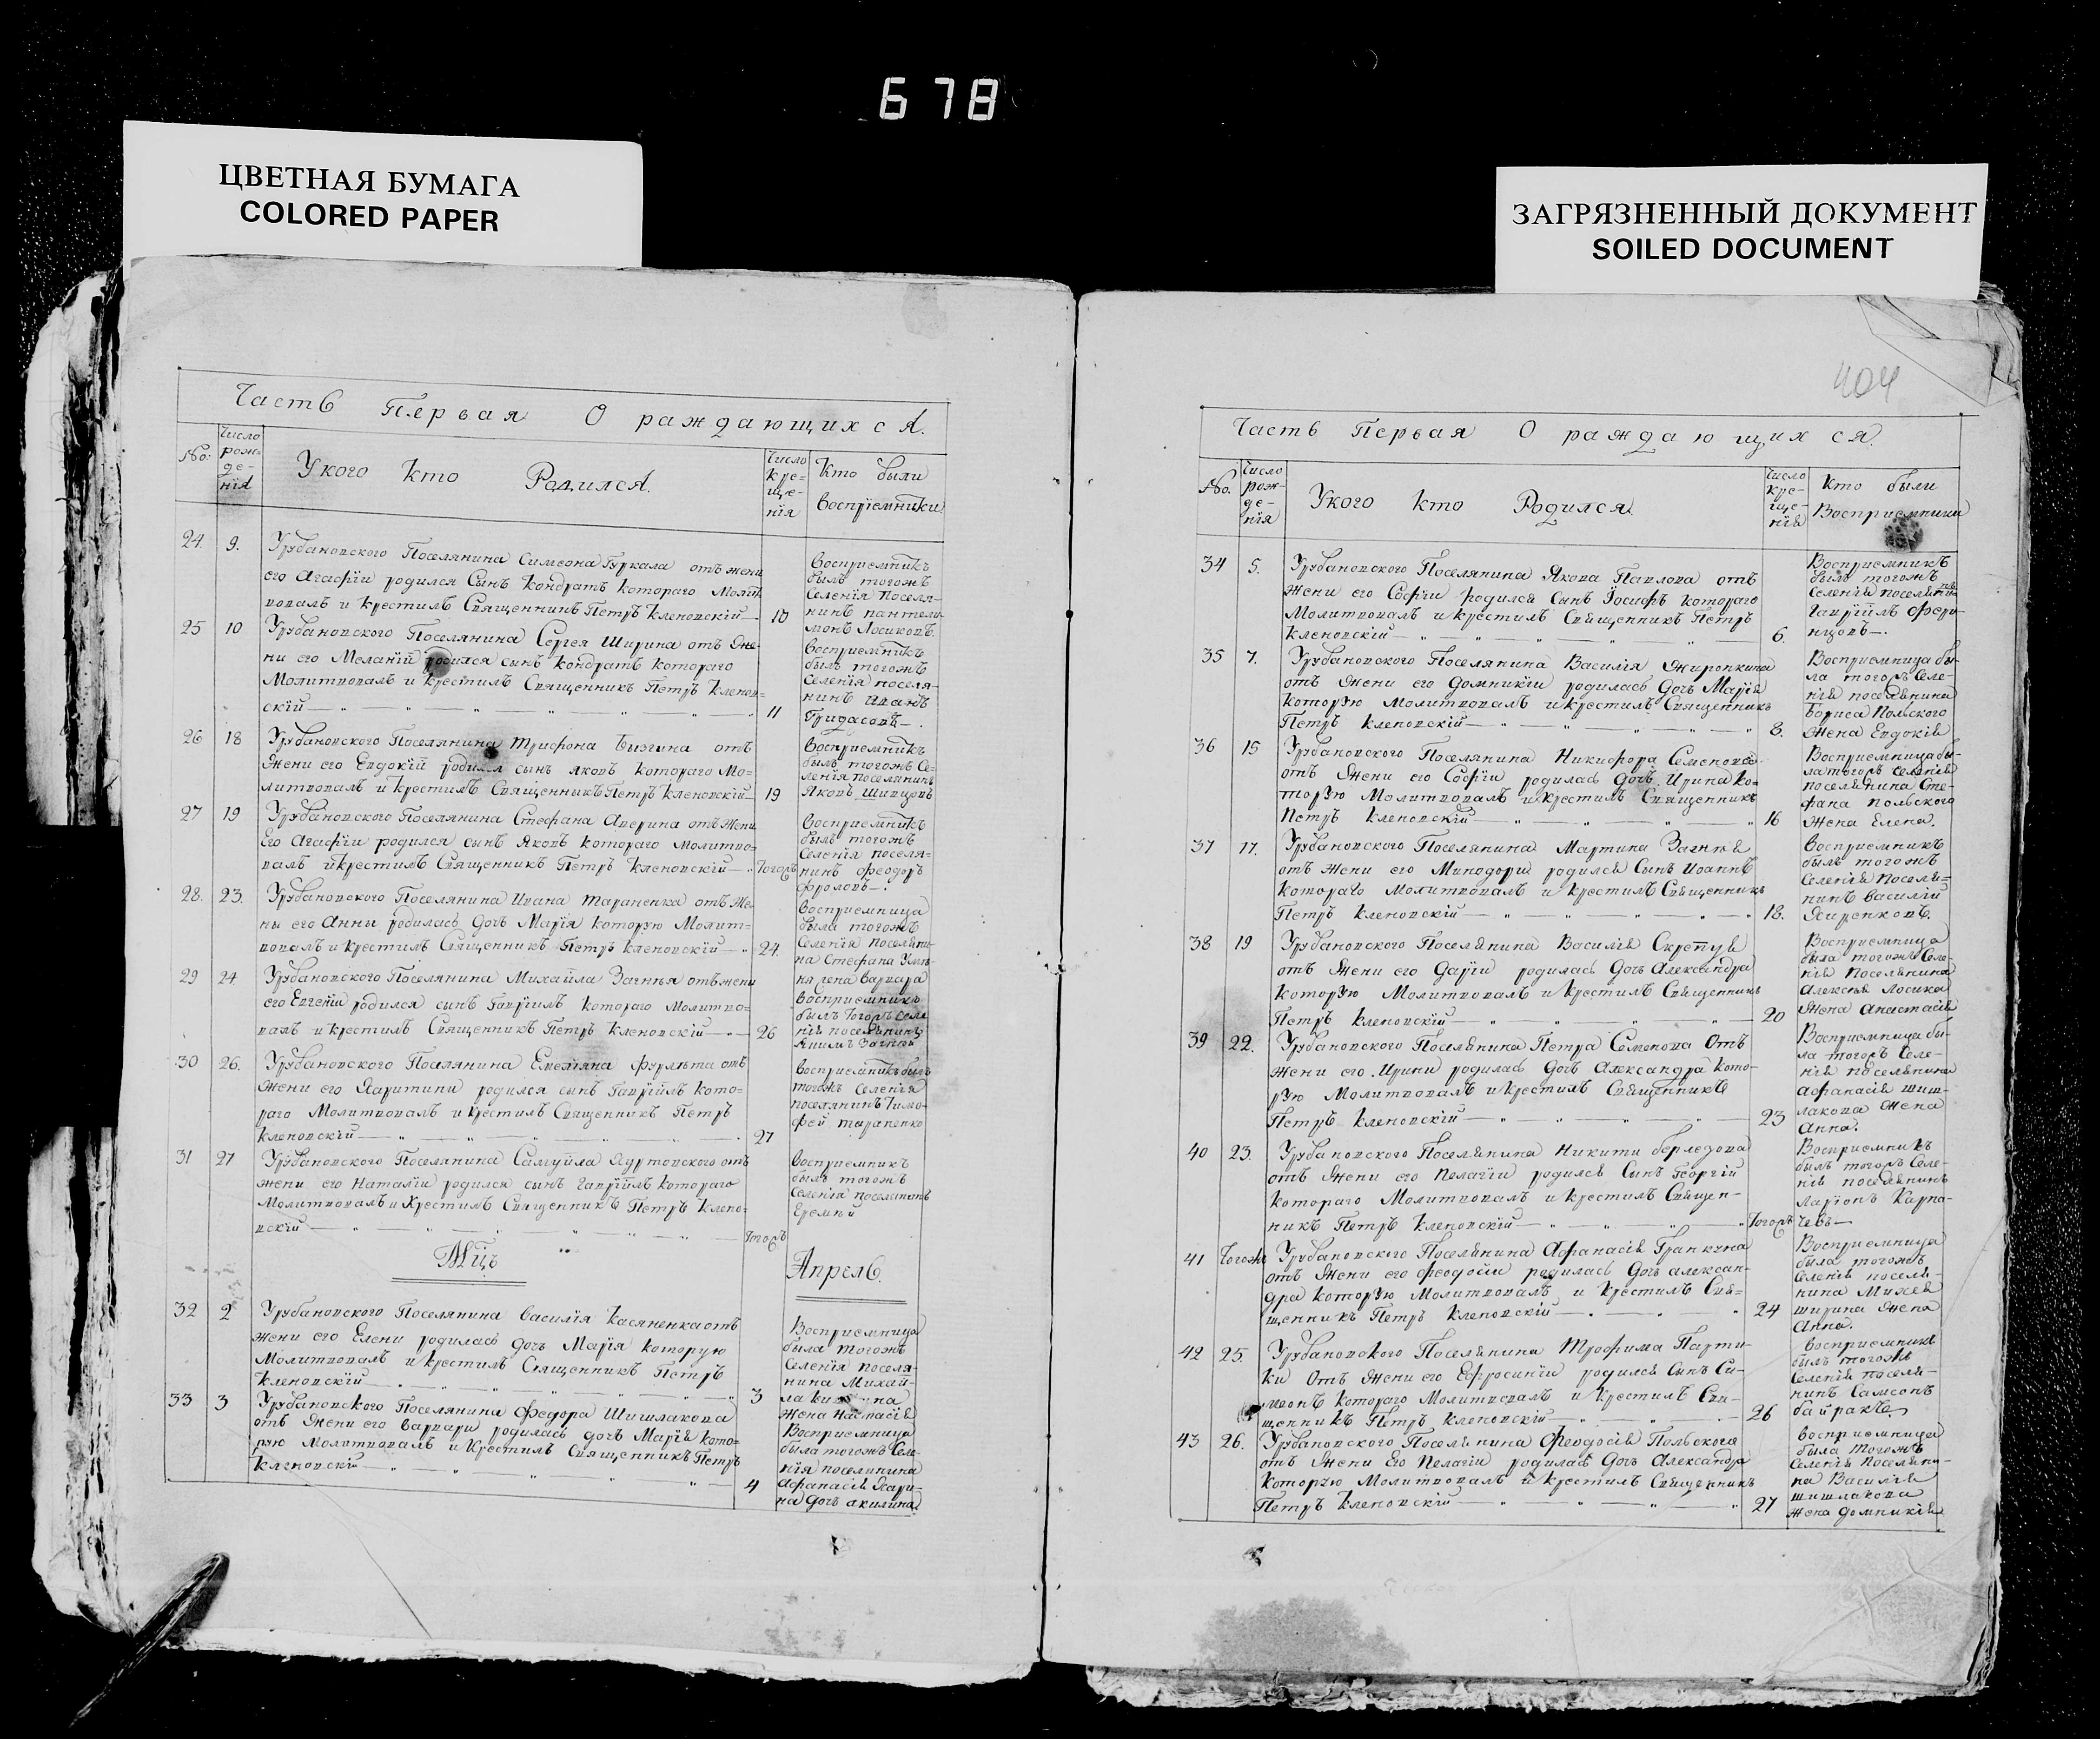 678
ЦВЕТНАЯ БУМАГА
COLORED PAPER
ЗАГРЯЗНЕННЫЙ ДОКУМЕНТ
SOILED DOCUMENT
404
Часть Первая О раждающихся.
No. Число рожденія Укого кто Родился. Число крещенія Кто были воспріемники
24. 9. Урубановского Поселянина Симеона Гуркала отъ жени
его Агафіи родился Сынъ Кондратъ котораго Молит
вовалъ и крестилъ Священникъ Петръ Кленовскій 10
Воспріемникъ
былъ тогожъ
Селенія Поселя-
нинъ пантели
монъ Лосиковъ.
25 10 Урубановского Поселянина Сергея Ширина отъ Же-
ни его Меланіи родился сынъ Кондратъ котораго
Молитвовалъ и крестилъ Священникъ Петръ Кленов=
скій 11
Воспріемникъ
былъ тогожъ
Селенія поселя-
нинъ Иванъ
Гридасовъ.
26 18 Урубановского Поселянина Трифона отъ
Жени его Евдокіи родился сынъ Яковъ котораго Мо=
литвовалъ и крестилъ Священникъ Петръ Кленовскій 19
Воспріемникъ
былъ тогожъ Се-
ленія поселянинъ
Яковъ Шивцовъ
27 19 Урубановского Поселянина Стефана Аверина отъ Жени
Его Агафіи родился сынъ Яковъ котораго молитво=
валъ и крестилъ Священникъ Петръ Кленовскій Тогожъ
Воспріемникъ
былъ тогожъ
Селенія поселя=
нинъ Феодоръ
Фроловъ.
28. 23. Урубановского Поселянина Ивана Тараненка отъ Же-
ны его Анны родилась дочь Марія которую Молит=
вовалъ и крестилъ Священникъ Петръ Кленовскій 24.
Воспріемница
была тогожъ
Селенія поселяни-
на Стефана
жена Варвара
29 24 Урубановского Поселянина Михайла Загнья отъ жени
его Евгеніи родился сынъ Гавріилъ котораго Молитво=
валъ и крестилъ Священникъ Петръ Кленовскій 26
Воспріемникъ
былъ Тогожъ Селе
нія поселянинъ
30 26. Урубановского Поселянина Емеляна отъ
жени его Харитини родился сынъ Гавріилъ кото-
раго Молитвовалъ и крестилъ Священникъ Петръ
Кленовскій 27
Воспріемникъ былъ
тогожъ Селенія
поселянинъ Тимо-
фей тараненко
31 27 Урубановского Поселянина Самуйла отъ
жени его Наталіи родился сынъ Гавріилъ котораго
Молитвовалъ и Крестилъ Священникъ Петръ Клено=
вскій Тогожъ
Воспріемникъ
былъ тогожъ
Селенія поселянинъ
Еремъй
Мцъ Апрель.
32 2 Урубановского Поселянина Василія Касяненка отъ
жени его Елени родилась дочь Марія которую
Молитвовалъ и крестилъ Священникъ Петръ
Кленовскій 3
Воспріемница
была тогожъ
Селенія поселя-
нина Михай-
ла
жена Настасія
33 3 Урубановского Поселянина Федора Шишлакова
отъ Жени его Варвари родилась дочь Марія кото=
рую Молитвовалъ и крестилъ Священникъ Петръ
Кленовскій 4
Воспріемница
была тогожъ Селе-
нія поселянина
Афанасія
на дочь акилина.
Часть Первая О раждающихся.
No. Число рожденія Укого кто Родился. Число крещенія Кто были Воспріемники
34 5. Урубановского Поселянина Якова Павлова отъ
Жени его Софіи родился Сынъ Іосифъ котораго
Молитвовалъ и крестилъ Священникъ Петръ
Кленовскій 6.
Воспріемникъ
былъ тогожъ
Селенія поселянинъ
Гавріилъ Фери-
нцовъ.
35 7. Урубановского Поселянина Василія Жиронкина
отъ Жени его Домникіи родилась Дочь Марія
которую Молитвовалъ и крестилъ Священникъ
Петръ Кленовскій 8.
Воспріемница бы-
ла тогожъ Селе-
нія поселянина
Бориса Польского
Жена Евдокія
36 15 Урубановского Поселянина Никифора Семенова
отъ Жени его Софіи родилась дочь Ирина ко-
торую Молитвовалъ и крестилъ Священникъ
Петръ Кленовскій 16
Воспріемница бы-
ла тогожъ Селенія
поселянина Сте-
фана Польского
Жена Елена.
37 17. Урубановского Поселянина Мартина Загнья
отъ жени его Минодори родился Сынъ Иоаннъ
котораго Молитвовалъ и крестилъ Священникъ
Петръ Кленовскій 18.
Воспріемникъ
былъ тогожъ
Селенія поселя=
нинъ Василій
38 19 Урубановского Поселянина Василія Скрепца
отъ Жени его Даріи родилась Дочь Александра
которую Молитвовалъ и крестилъ Священникъ
Петръ Кленовскій 20
Воспріемница
была тогожъ Селе-
нія Поселянина
Алексья Лосика
Жена Анастасія
39 22. Урубановского Поселянина Петра Семенова Отъ
жени его Ирини родилась Дочь Александра кото-
рую Молитвовалъ и крестилъ Священникъ
Петръ Кленовскій 23
Воспріемница бы-
ла тогожъ Селе-
нія поселянина
Афанасія шиш-
лакова Жена
Анна.
40 23. Урубановского Поселянина Никити берлезова
отъ Жени его Пелагіи родился Сынъ Георгій
котораго Молитвовалъ и крестилъ Священ-
никъ Петръ Кленовскій Тогожъ
Воспріемникъ
былъ тогожъ Селе-
нія поселянинъ
Ларіонъ Карпа-
чевъ
41 Тогожъ Урубановского Поселянина Афанасія Гранкина
отъ Жени его Феодосіи родилась Дочь алексан-
дра которую Молитвовалъ и крестилъ Свя=
щенникъ Петръ Кленовскій 24
Воспріемница
была тогожъ
Селенія поселя-
нина Михея
ширина Жена
Анна.
42 25. Урубановского Поселянина Трофима Парти-
ки Отъ Жени его Ефросиніи родился Сынъ Си-
меонъ котораго Молитвовалъ и крестилъ Свя-
щенникъ Петръ Кленовскій 26
Воспріемникъ
былъ тогожъ
Селенія поселя-
нинъ Самсонъ
байракъ
43 26. Урубановского Поселянина Феодосія Польского
отъ Жени Его Пелагіи родилась Дочь Александра
которую Молитвовалъ и крестилъ Священникъ
Петръ Кленовскій 27
Воспріемница
была тогожъ
Селенія поселяни-
на Василія
шишлакова
Жена домникія